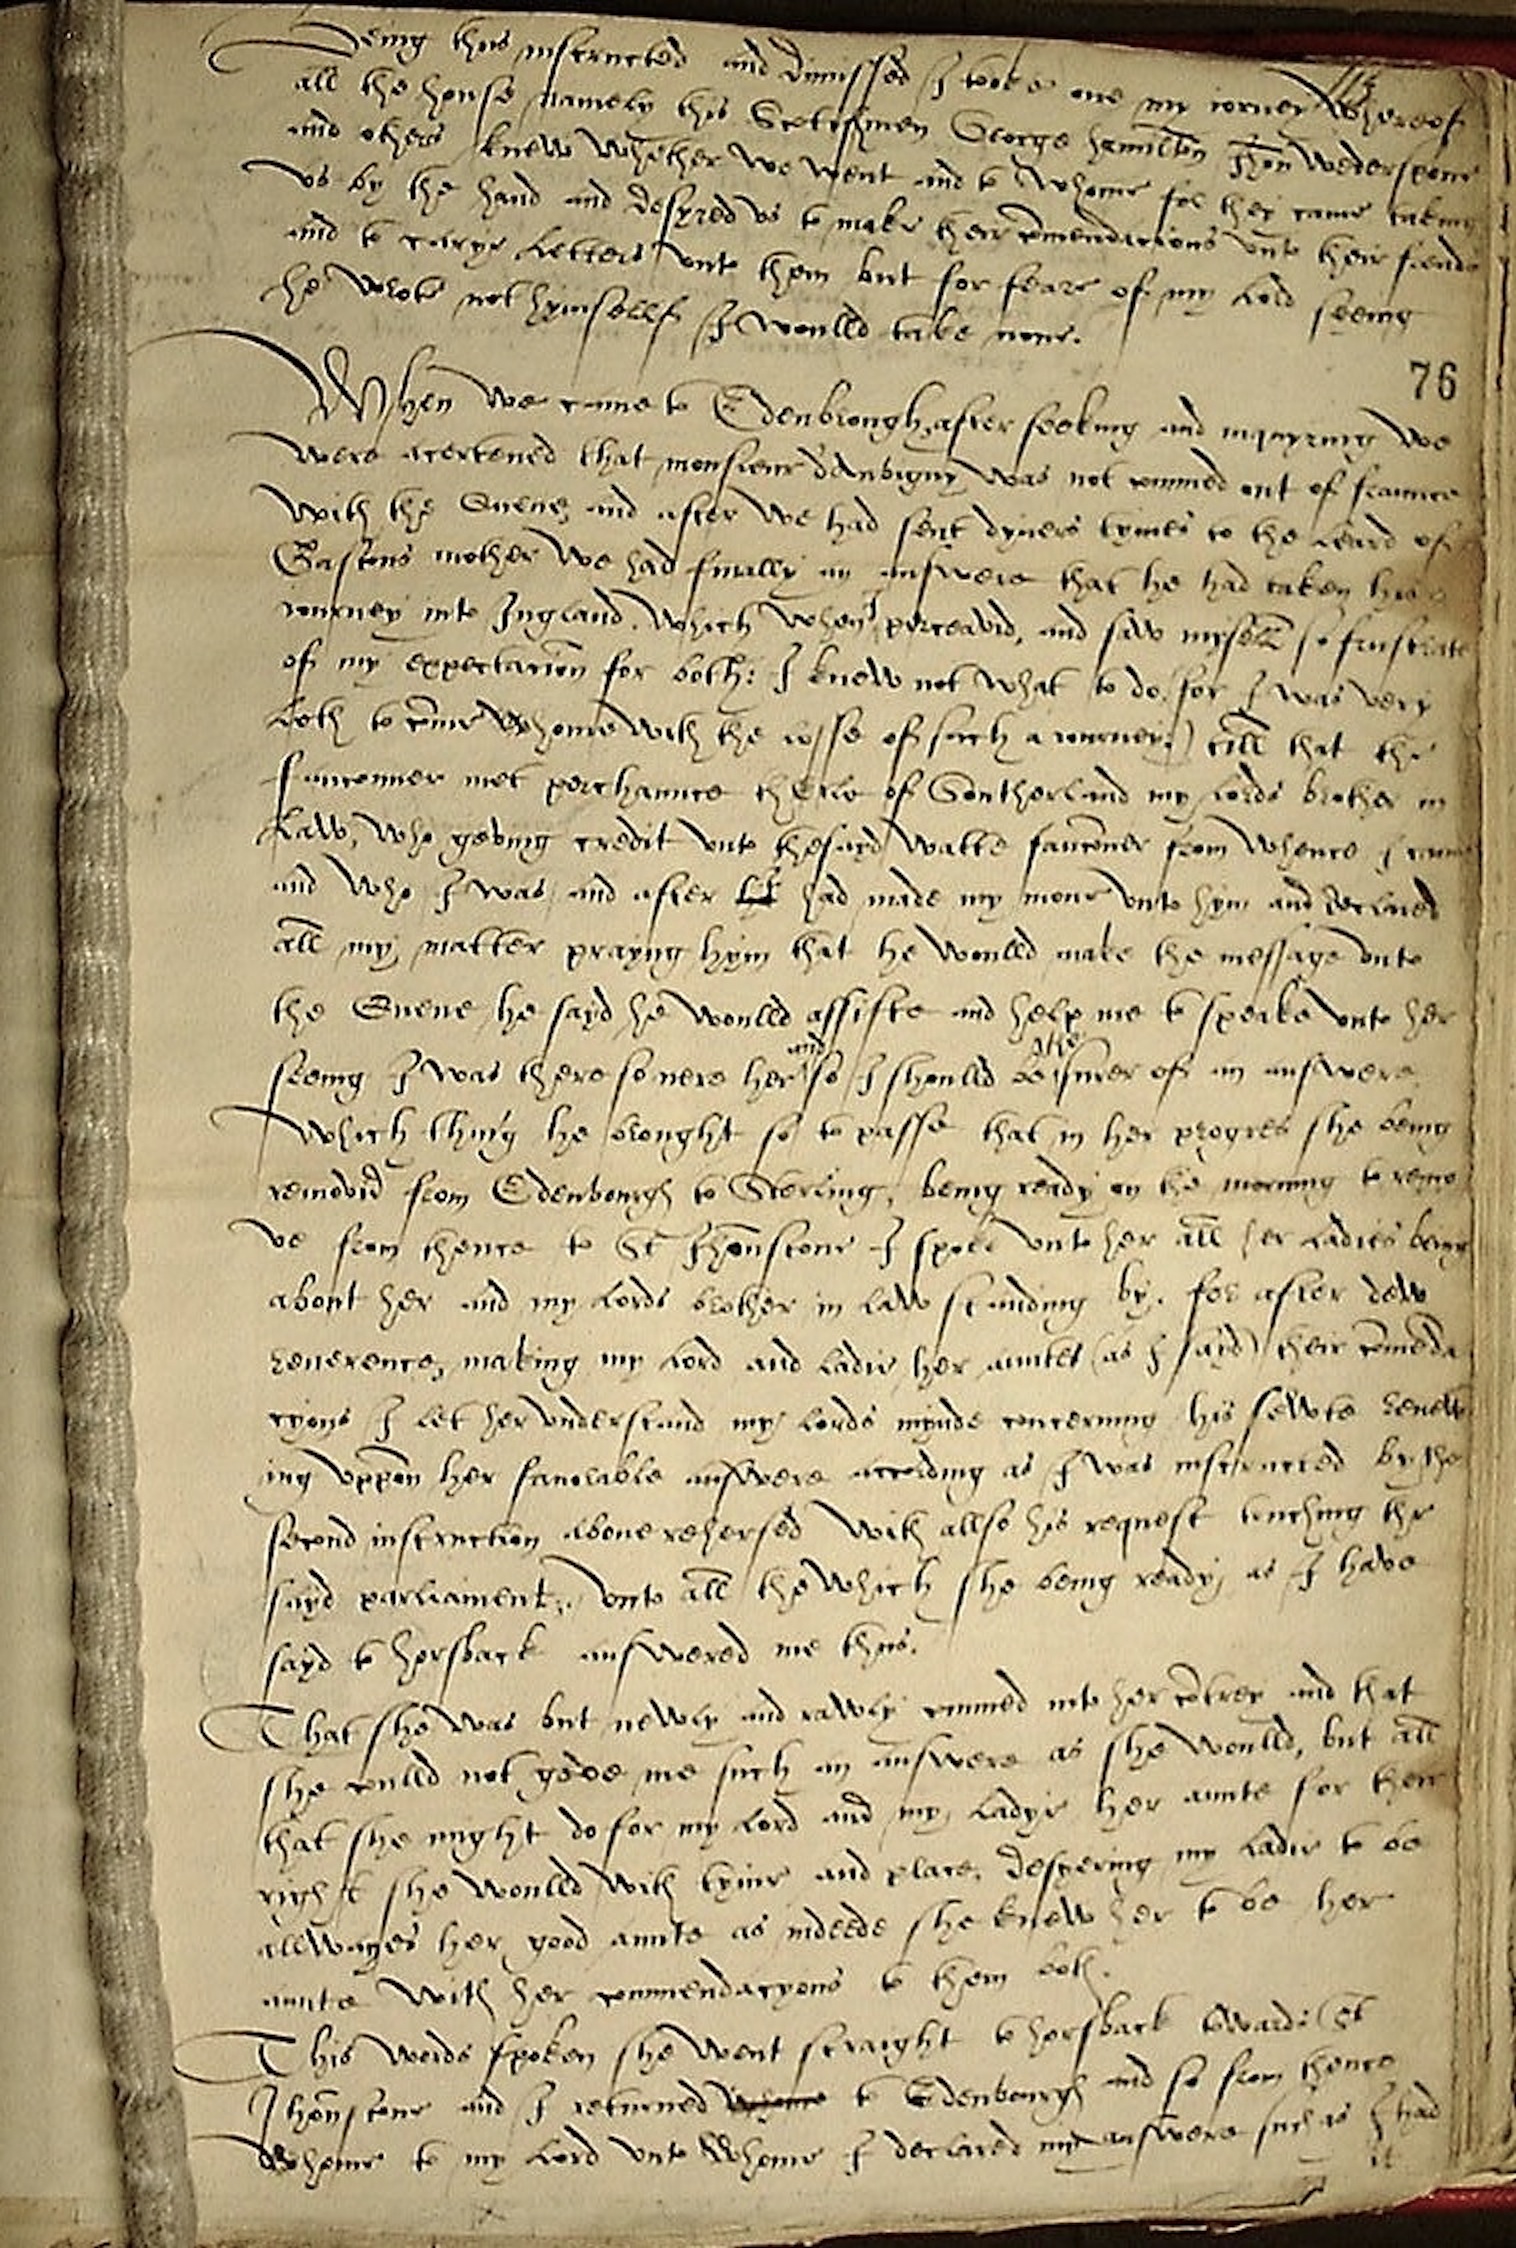 Being thus instructed and dimissed I tooke one my iorney Whereof
all the house namely this Scotishmen George hamilton Jhon Wederspone
and others knew Whether We Went and to Whome for they came taking
vs by the hand and desyred vs to make their comendacions vnto their frends
and to carye Letters vnto them but for feare of my Lord seeing
he Wrote not hymsellf I Woulld take none.
76
When We came to Edenbrough, after seeking and inquyring We
Were acertened that monsieur d'Aubigny Was not commed out of fraunce
With the Quene, and after We had sent dyuers tymes to the Leard of
Gastons mother We had finally an answere that he had taken his
iourney into Ingland. Which When I perceavid, and saw mysellf so frustrate
of my expectacion for both: I knew not What to do, for I Was very
Loth to come Whome With the losse of such a iourney, till that the
fauconner met perchaunce th'Erle of Southerland my Lords brother in
Law, Who geving credit vnto thesayd Watte fauconer from Whence I came
and Who I Was and after had made my mone vnto hym and declared
all my matter praying hym that he Woulld make the message vnto
the Quene, he sayd he Woulld assiste and help me to speake vnto her
seeing I Was there so nere her and so I shoulld be the surer of an answere
Which thing he brought so to passe that in her progres she being
removid from Edenbourgh to Sterling, being ready on the morning to remo
ve from thence to St Jhonstone I spoke vnto her all her Ladies being
about her and my Lords brother in Law standing by. for after dew
reuerence, making my Lord and Ladie her auntes (as I sayd) their comenda
cyons I let her vnderstand my Lords mynde concerning his sewte renew
ing vppon her fauorable answere according as I Was instructed by the
second instruction aboue rehersed With allso his request touching the
sayd parliament. Vnto all the Which she being ready, as I have
sayd to horsback answered me thus.
That she Was but newly and rawly commed into her contrey and that
she coulld not geve me such an answere as she Woulld, but all
that she might do for my Lord and my Ladye her aunte for their
right she Woulld With tyme and place. Desyering my Ladie to be
allwayes her good aunte as indeede she knew her to be her
aunte With her commendacyons to them both.
This Words spoken she Went straight to horsback towards St
Jhonstone and I returned to Edenbourgh and so from thence
Whome to my Lord vnto Whome I declared my answere such as I had
it